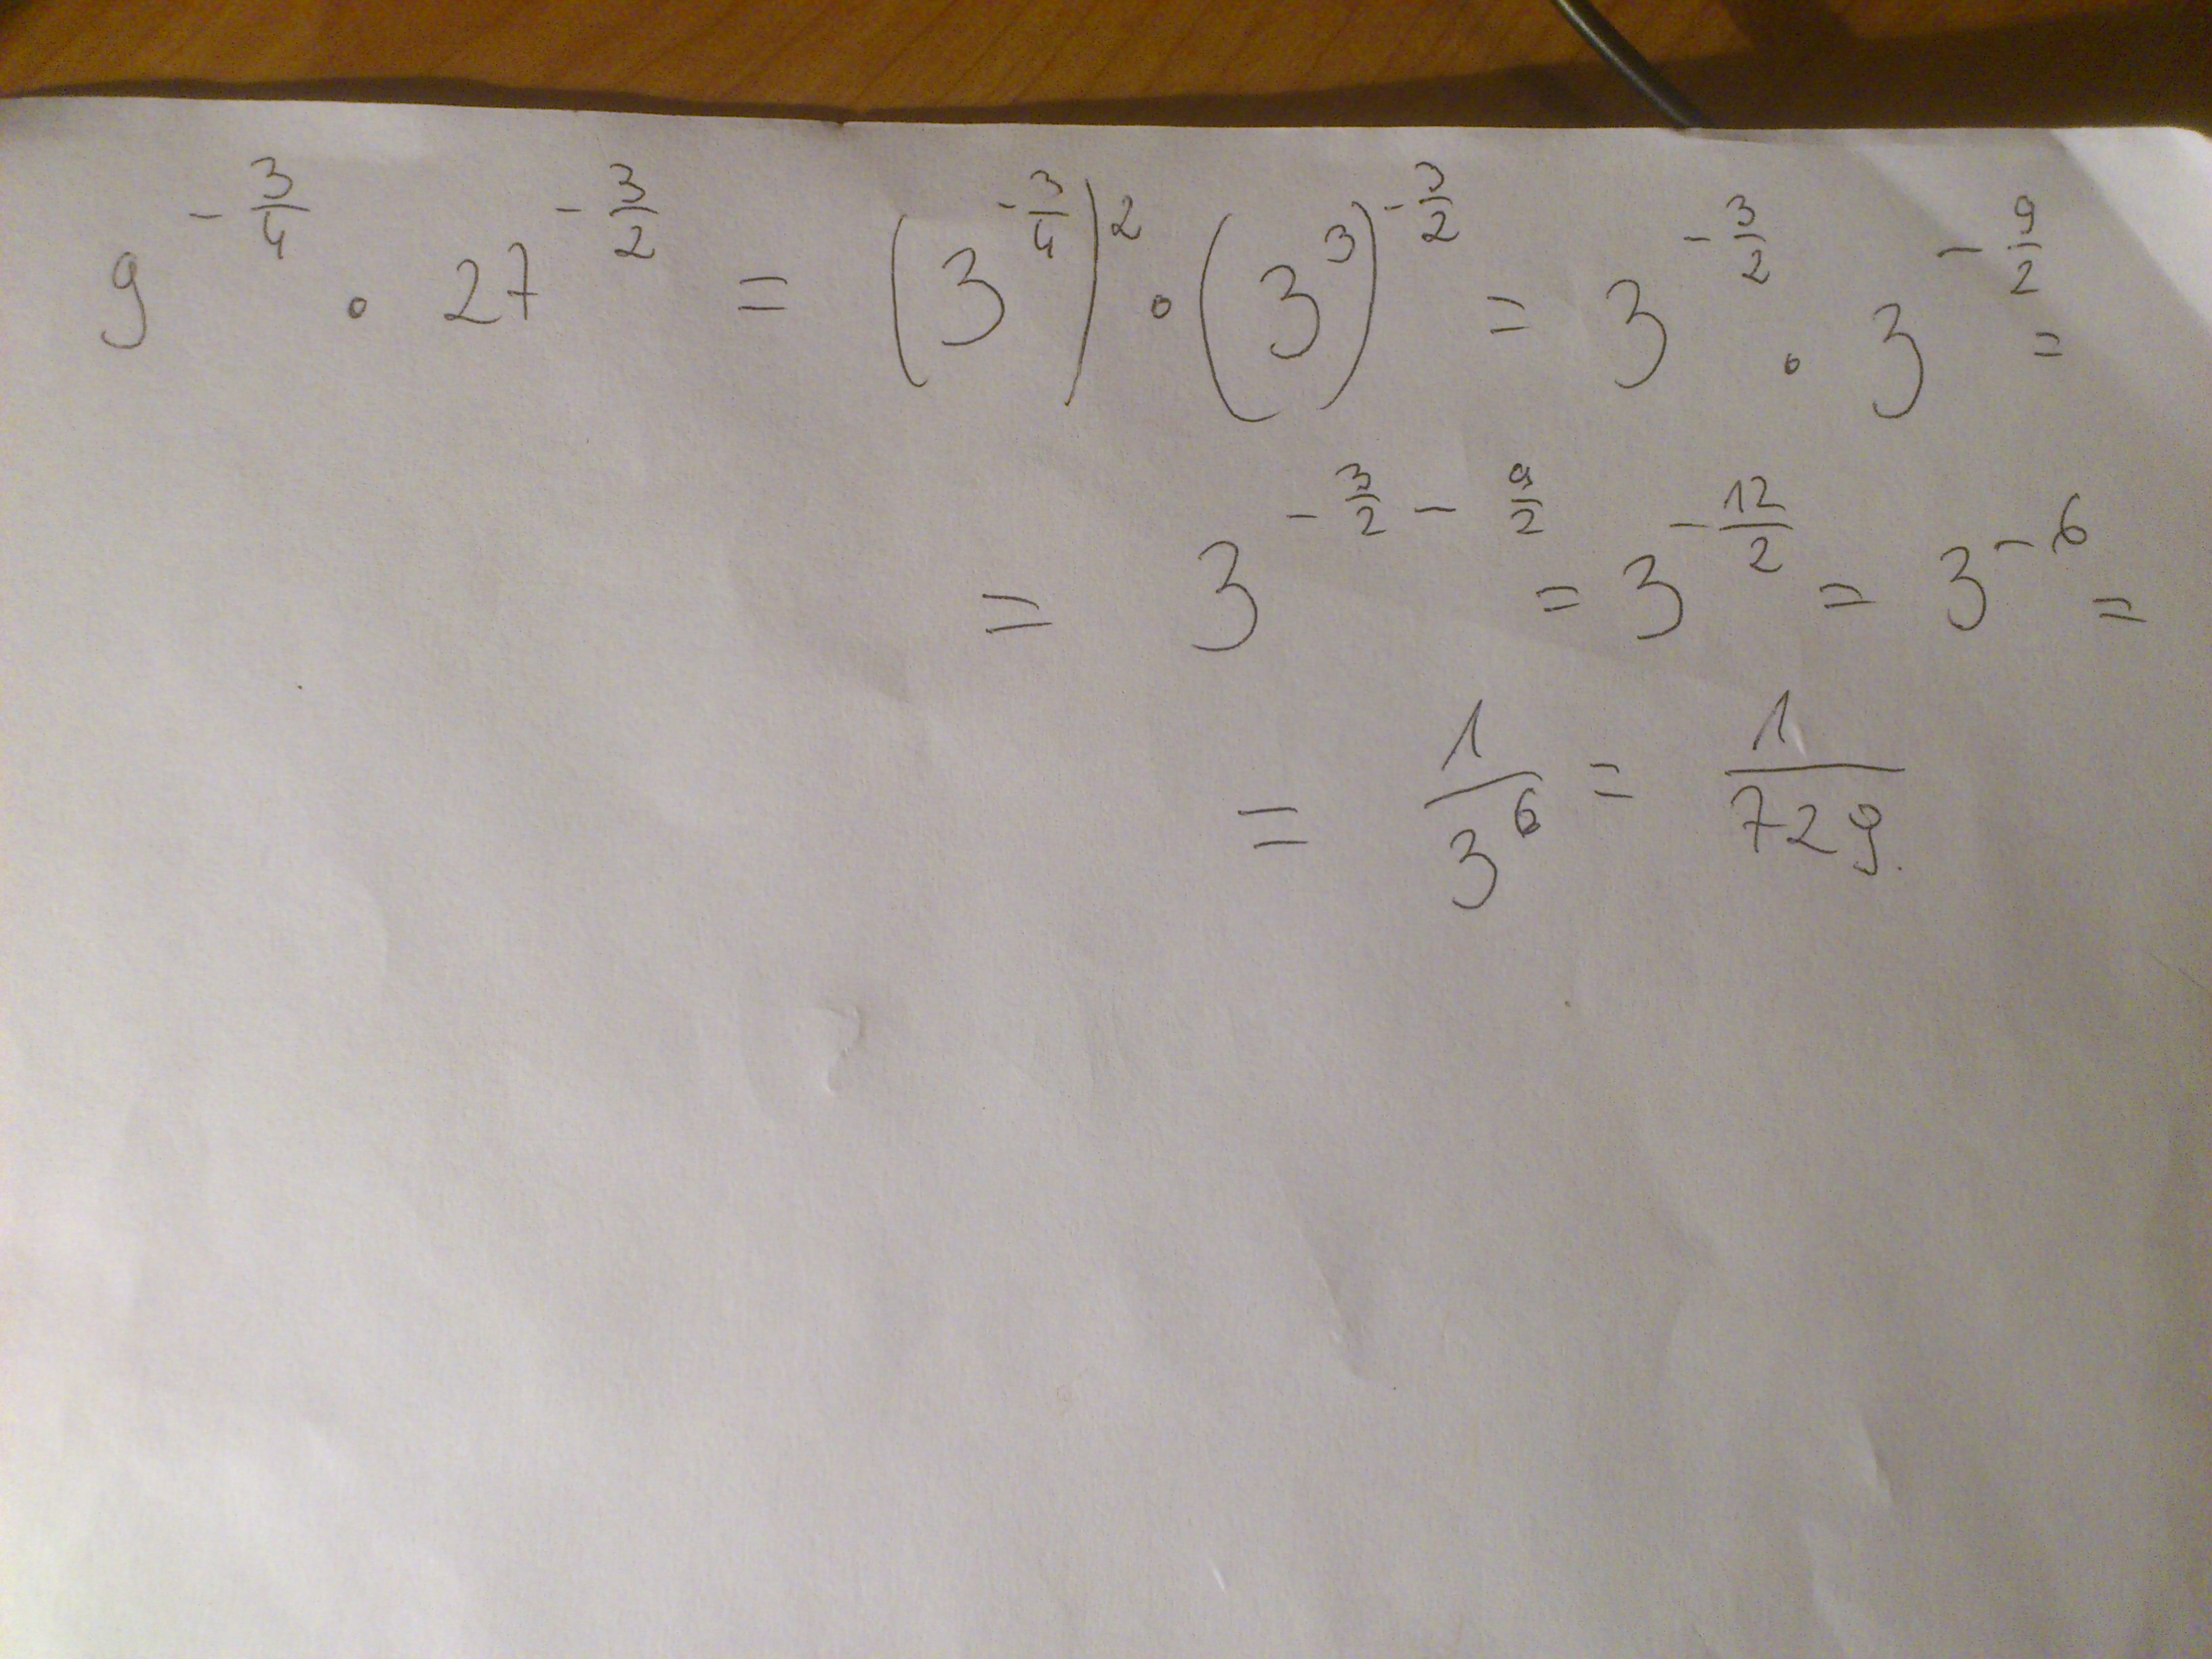 9^{-\frac{3}{4}} · 27^{-\frac{3}{2}} = (3^{-\frac{3}{4}})^2 · (3^3)^{-\frac{3}{2}} = 3^{-\frac{3}{2}} · 3^{-\frac{9}{2}} =
= 3^{-\frac{3}{2} - \frac{9}{2}} = 3^{-\frac{12}{2}} = 3^{-6} =
= \frac{1}{3^6} = \frac{1}{729}.